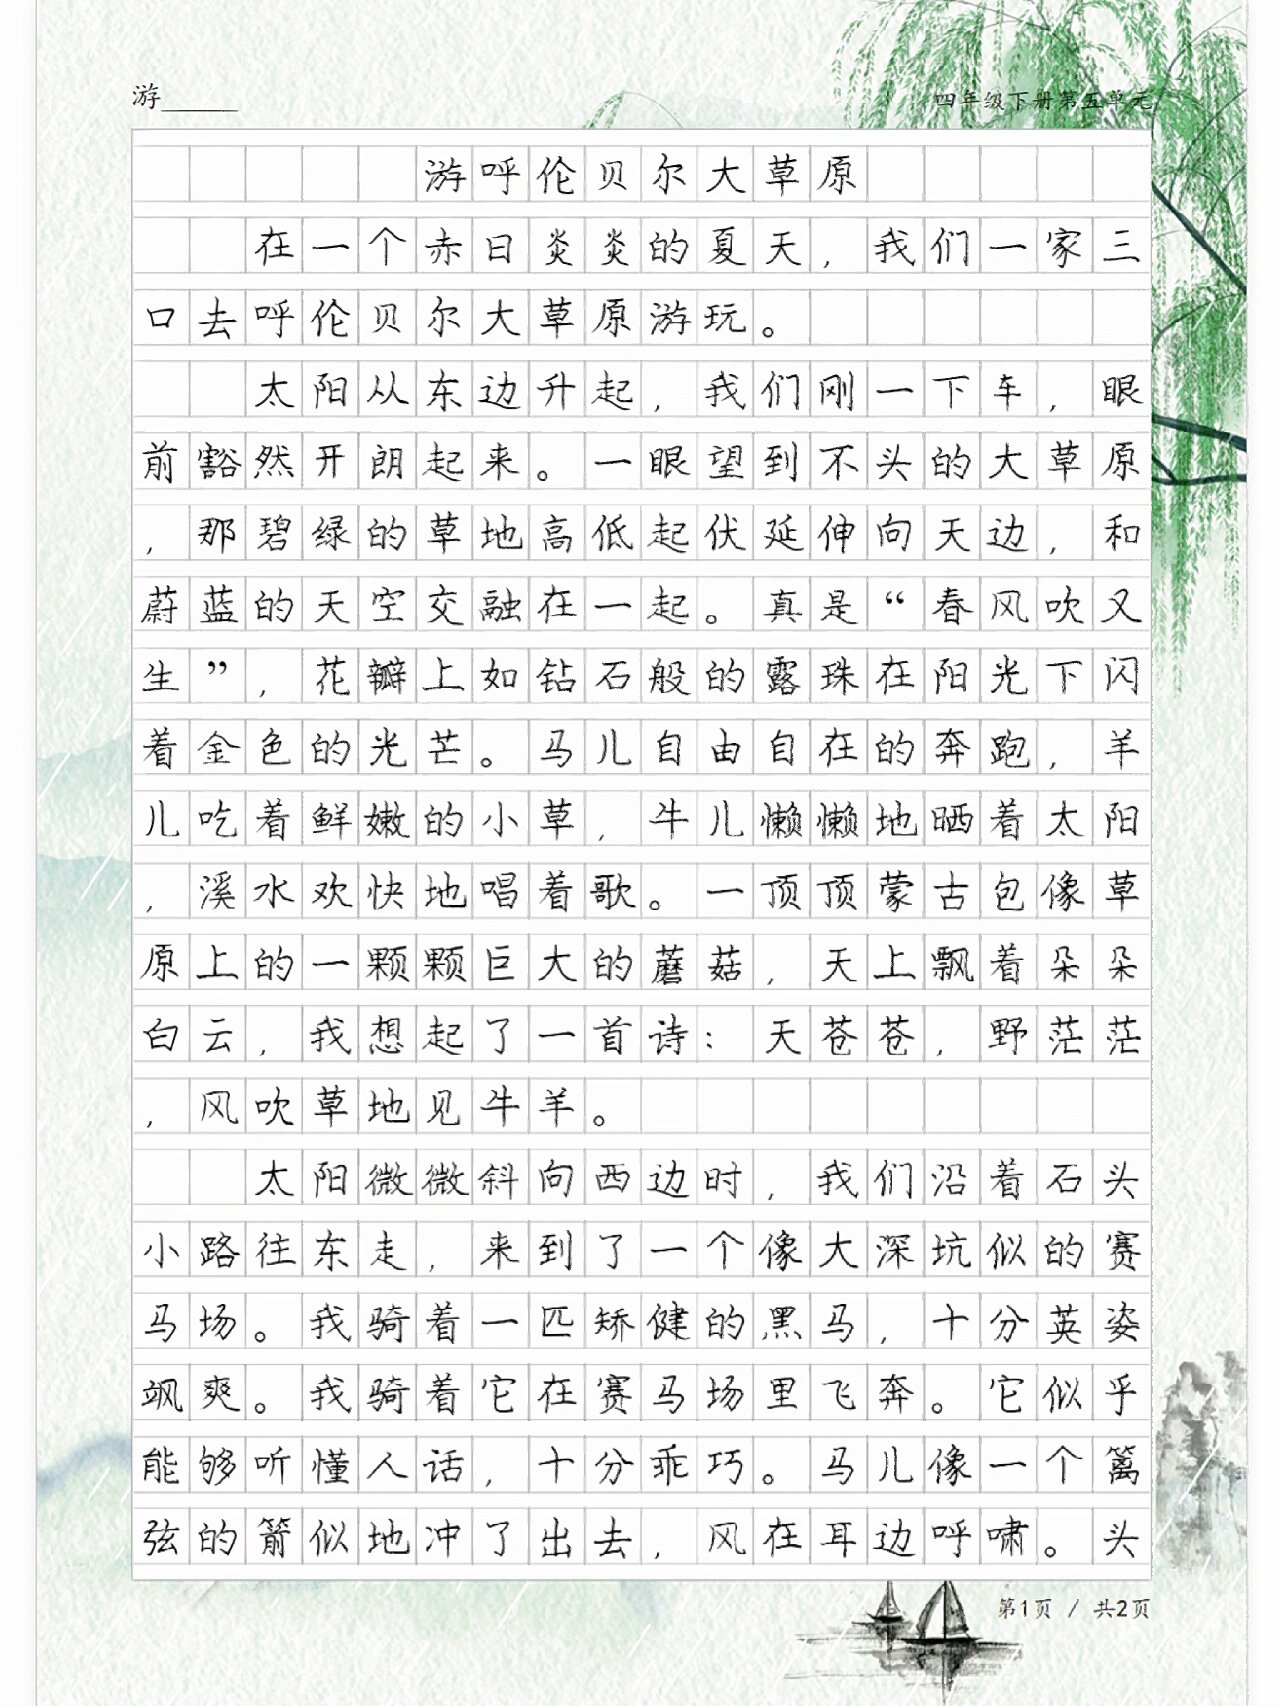 游______
四年级下册第五单元
游呼伦贝尔大草原
在一个赤日炎炎的夏天，我们一家三
口去呼伦贝尔大草原游玩。
太阳从东边升起，我们刚一下车，眼
前豁然开朗起来。一眼望到不头的大草原
，那碧绿的草地高低起伏延伸向天边，和
蔚蓝的天空交融在一起。真是“春风吹又
生”，花瓣上如钻石般的露珠在阳光下闪
着金色的光芒。马儿自由自在的奔跑，羊
儿吃着鲜嫩的小草，牛儿懒懒地晒着太阳
，溪水欢快地唱着歌。一顶顶蒙古包像草
原上的一颗颗巨大的蘑菇，天上飘着朵朵
白云，我想起了一首诗：天苍苍，野茫茫
，风吹草地见牛羊。
太阳微微斜向西边时，我们沿着石头
小路往东走，来到了一个像大深坑似的赛
马场。我骑着一匹矫健的黑马，十分英姿
飒爽。我骑着它在赛马场里飞奔。它似乎
能够听懂人话，十分乖巧。马儿像一个篱
弦的箭似地冲了出去，风在耳边呼啸。头
第1页 / 共2页